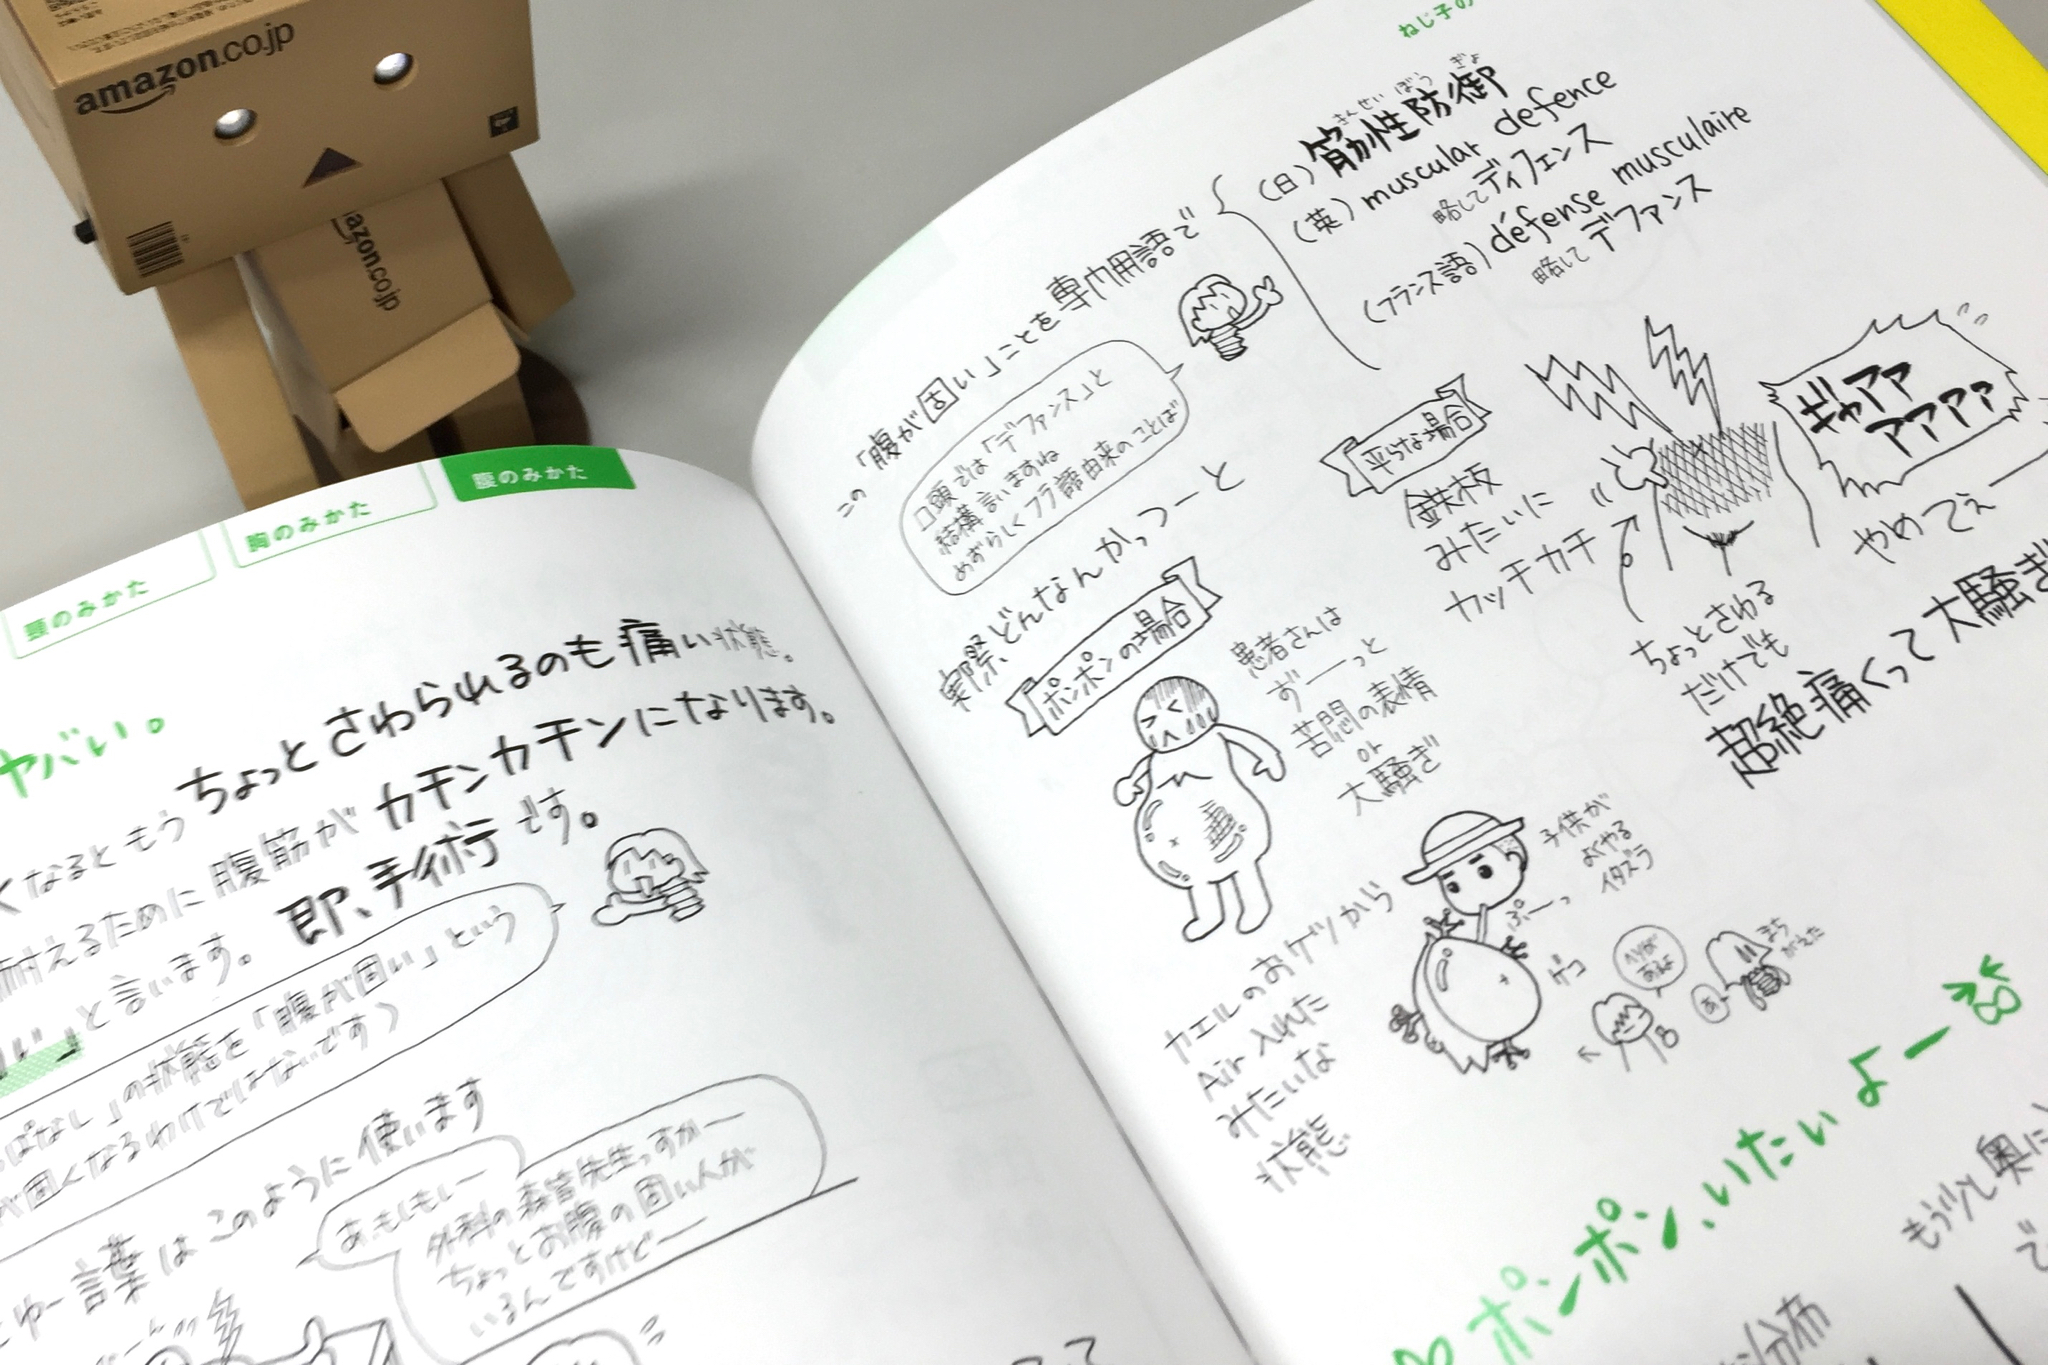 amazon.co.jp
amazon.co.jp
頭のみかた
胸のみかた
腹のみかた
ヤバい。
くなるともう ちょっとさわられるのも痛い状態。
耐えるために腹筋がカチンカチンになります。
と言います。即、手術です。
っぱなし」の状態を「腹が固い」という
が固くなるわけではないです)
言葉はこのように使います
あ、もしもしー
外科の森皆先生っすかー
ちょっとお腹の固い人が
いるんですけどー
ねじ子の
この「腹が固い」ことを専門用語で
(日)筋性防御
きんせい ぼう ぎょ
(英)muscular defence
略してディフェンス
(フランス語)défense musculaire
略してデファンス
口頭では「デファンス」と
結構言いますね
めずらしくフラ語由来のことば
実際どんなんかっつーと
ポンポンの場合
患者さんは
ずーーっと
苦悶の表情
or
大騒ぎ
カエルのおケツから
Air 入れた
みたいな
状態
子供が
よくやる
イタズラ
ぷーっ
ゲコ
ヘソが
あるよ
あー
まち
がえた
平らな場合
鉄板
みたいに
カッチカチ
ギャアア
アアアア
やめてぇー
ちょっとさわる
だけでも
超絶痛くって大騒ぎ
ポンポン、いたいよー
もう少し奥に
で
分布